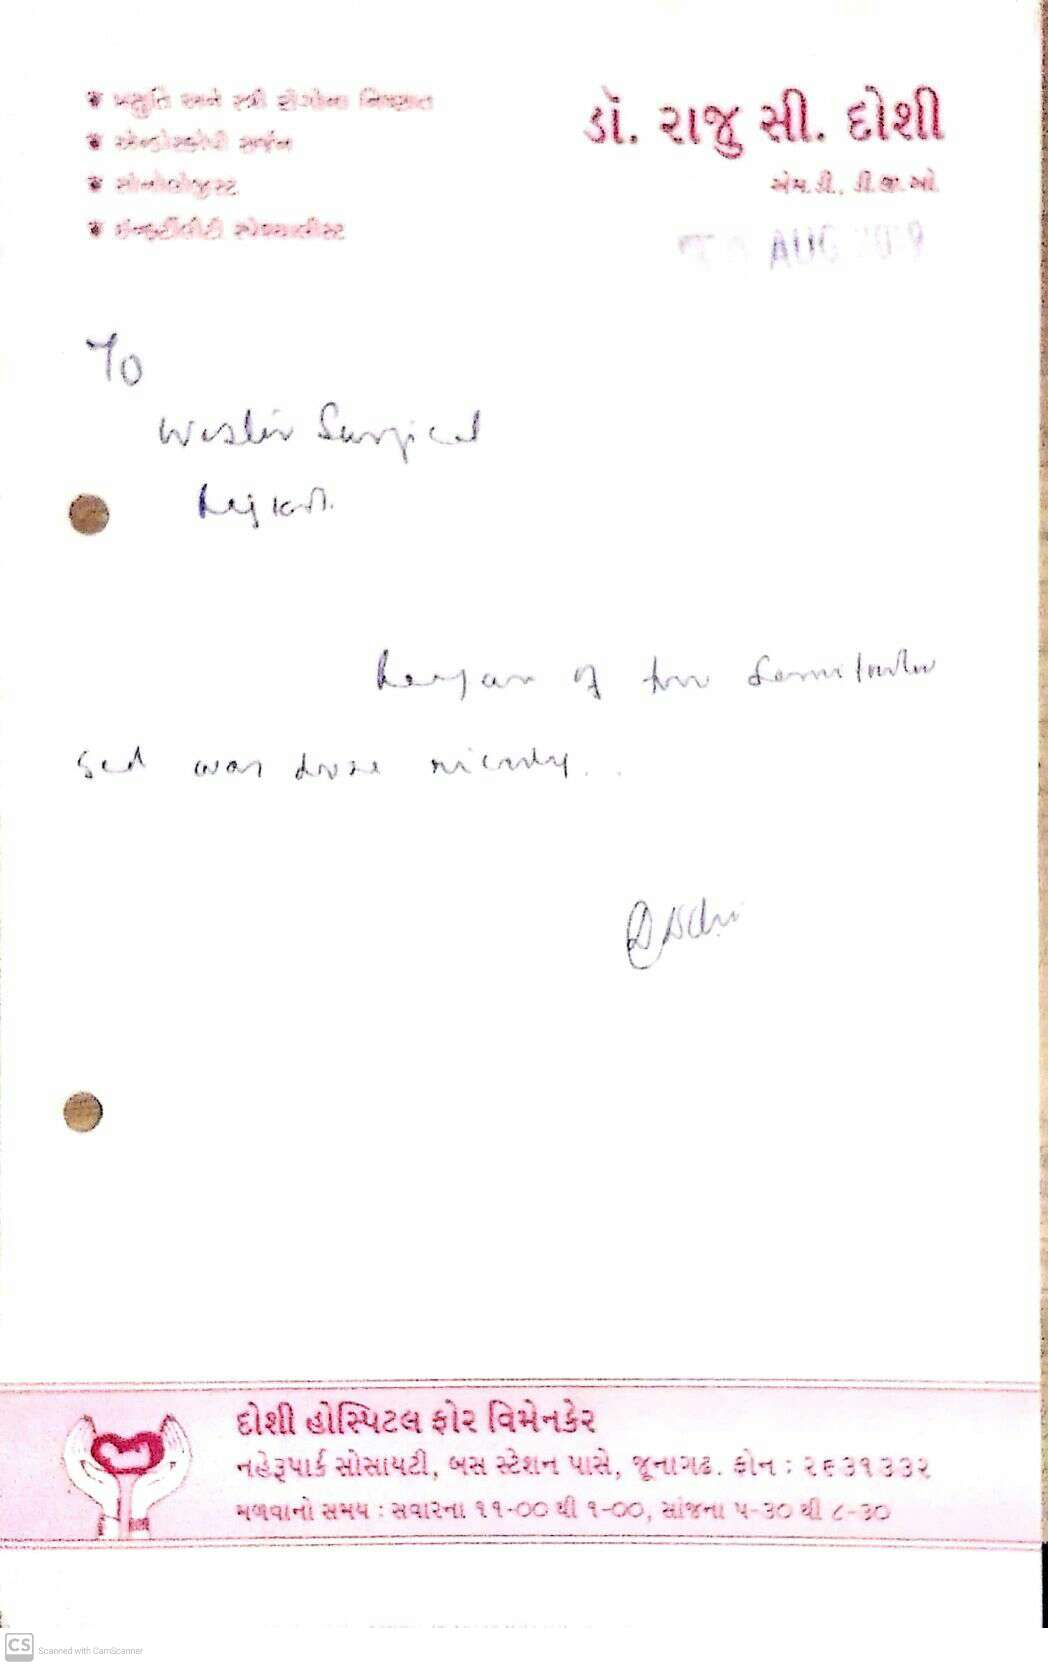 પ્રસુતિ અને સ્ત્રી રોગોના નિષ્ણાત
એન્ડોસ્કોપી સર્જન
સોનોલોજીસ્ટ
ઇન્ફર્ટીલીટી સ્પેશ્યાલીસ્ટ
ડૉ. રાજુ સી. દોશી
એમ.ડી. ડી.જી.ઓ.
AUG
To
Surgical
Rajkot.
of
was done nicely..
દોશી હોસ્પિટલ ફોર વિમેનકેર
નહેરૂપાર્ક સોસાયટી, બસ સ્ટેશન પાસે, જૂનાગઢ. ફોન : ૨૬૩૧૩૩૨
મળવાનો સમય : સવારના ૧૧-૦૦ થી ૧-૦૦, સાંજના ૫-૩૦ થી ૮-૩૦
CS Scanned with CamScanner